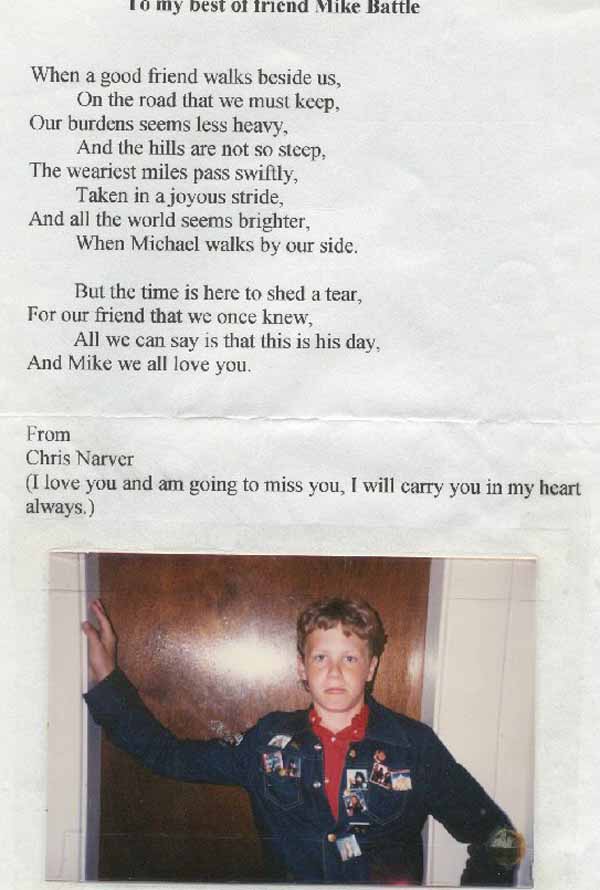 To my best of friend Mike Battle
When a good friend walks beside us,
On the road that we must keep,
Our burdens seems less heavy,
And the hills are not so steep,
The weariest miles pass swiftly,
Taken in a joyous stride,
And all the world seems brighter,
When Michael walks by our side.
But the time is here to shed a tear,
For our friend that we once knew,
All we can say is that this is his day,
And Mike we all love you.
From
Chris Narver
(I love you and am going to miss you, I will carry you in my heart
always.)